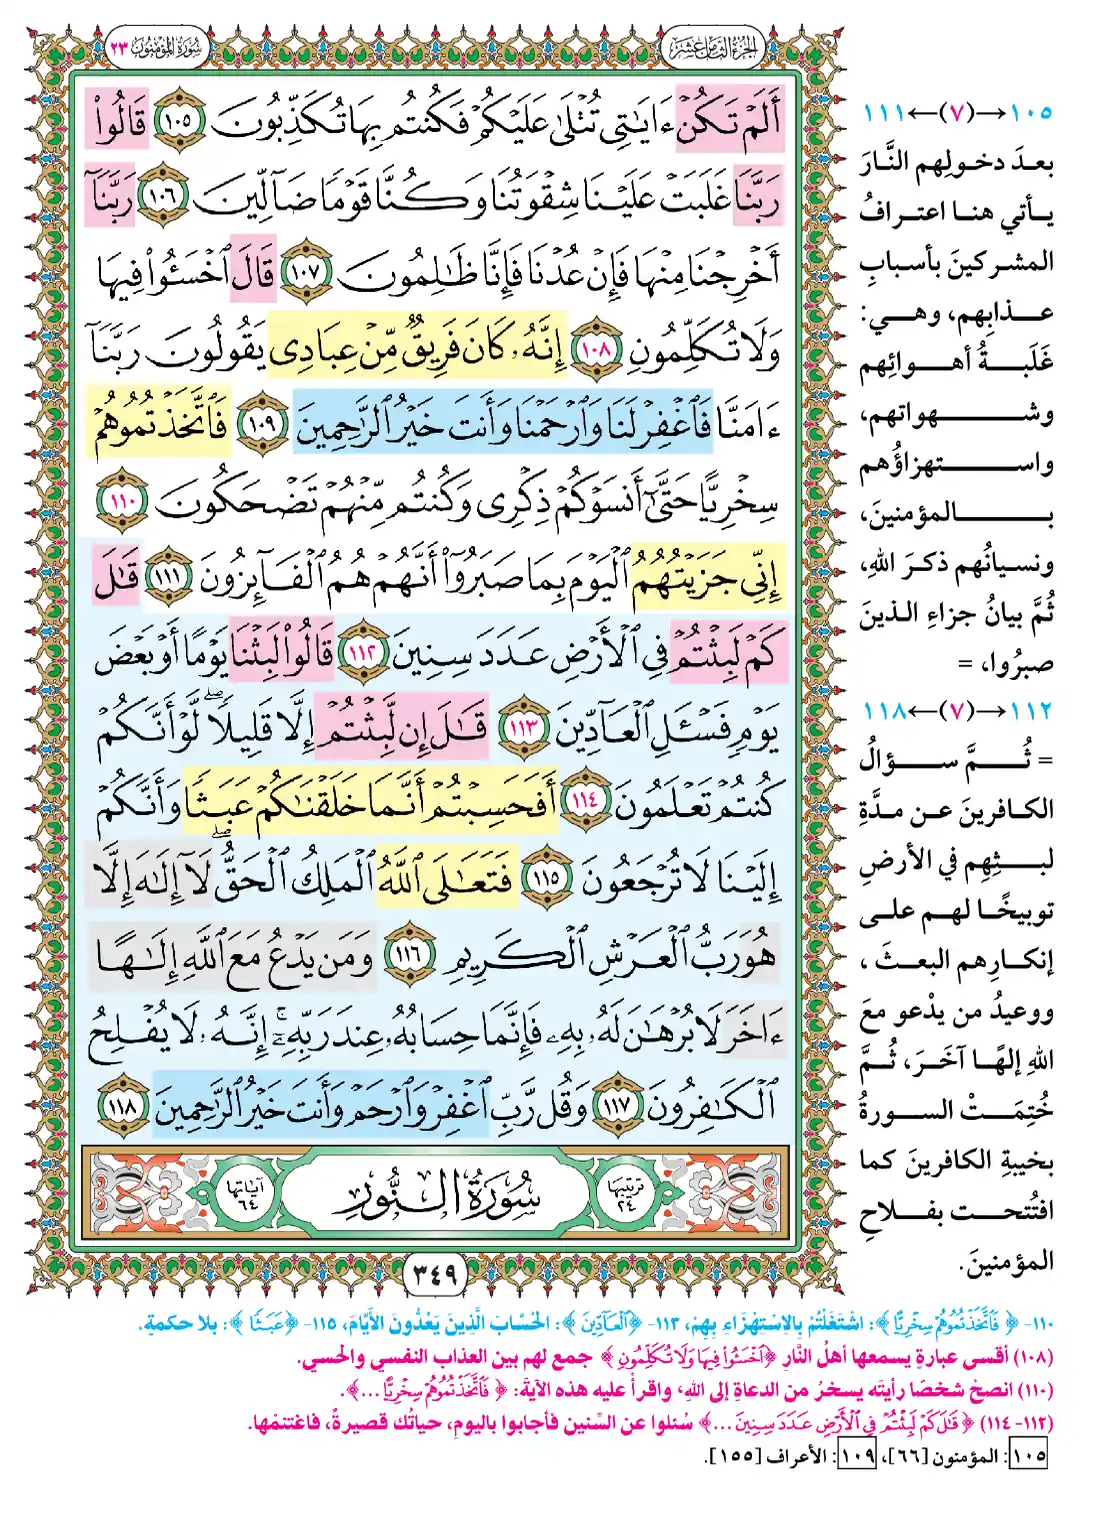 الجزء الثامن عشر
سورة المؤمنون ٢٣
أَلَمْ تَكُنْ ءَايَٰتِى تُتْلَىٰ عَلَيْكُمْ فَكُنتُم بِهَا تُكَذِّبُونَ ١٠٥ قَالُوا۟
رَبَّنَا غَلَبَتْ عَلَيْنَا شِقْوَتُنَا وَكُنَّا قَوْمًا ضَآلِّينَ ١٠٦ رَبَّنَآ
أَخْرِجْنَا مِنْهَا فَإِنْ عُدْنَا فَإِنَّا ظَٰلِمُونَ ١٠٧ قَالَ ٱخْسَـُٔوا۟ فِيهَا
وَلَا تُكَلِّمُونِ ١٠٨ إِنَّهُۥ كَانَ فَرِيقٌ مِّنْ عِبَادِى يَقُولُونَ رَبَّنَآ
ءَامَنَّا فَٱغْفِرْ لَنَا وَٱرْحَمْنَا وَأَنتَ خَيْرُ ٱلرَّٰحِمِينَ ١٠٩ فَٱتَّخَذْتُمُوهُمْ
سِخْرِيًّا حَتَّىٰٓ أَنسَوْكُمْ ذِكْرِى وَكُنتُم مِّنْهُمْ تَضْحَكُونَ ١١٠
إِنِّى جَزَيْتُهُمُ ٱلْيَوْمَ بِمَا صَبَرُوٓا۟ أَنَّهُمْ هُمُ ٱلْفَآئِزُونَ ١١١ قَٰلَ
كَمْ لَبِثْتُمْ فِى ٱلْأَرْضِ عَدَدَ سِنِينَ ١١٢ قَالُوا۟ لَبِثْنَا يَوْمًا أَوْ بَعْضَ
يَوْمٍ فَسْـَٔلِ ٱلْعَآدِّينَ ١١٣ قَٰلَ إِن لَّبِثْتُمْ إِلَّا قَلِيلًا ۖ لَّوْ أَنَّكُمْ
كُنتُمْ تَعْلَمُونَ ١١٤ أَفَحَسِبْتُمْ أَنَّمَا خَلَقْنَٰكُمْ عَبَثًا وَأَنَّكُمْ
إِلَيْنَا لَا تُرْجَعُونَ ١١٥ فَتَعَٰلَى ٱللَّهُ ٱلْمَلِكُ ٱلْحَقُّ ۖ لَآ إِلَٰهَ إِلَّا
هُوَ رَبُّ ٱلْعَرْشِ ٱلْكَرِيمِ ١١٦ وَمَن يَدْعُ مَعَ ٱللَّهِ إِلَٰهًا
ءَاخَرَ لَا بُرْهَٰنَ لَهُۥ بِهِۦ فَإِنَّمَا حِسَابُهُۥ عِندَ رَبِّهِۦٓ ۚ إِنَّهُۥ لَا يُفْلِحُ
ٱلْكَٰفِرُونَ ١١٧ وَقُل رَّبِّ ٱغْفِرْ وَٱرْحَمْ وَأَنتَ خَيْرُ ٱلرَّٰحِمِينَ ١١٨
ترتيبها ٢٤
سورة النور
آياتها ٦٤
٣٤٩
١٠٥→(٧)←١١١
بعدَ دخولِهم النَّارَ
يأتي هنا اعترافُ
المشركينَ بأسبابِ
عذابِهم، وهي:
غَلَبةُ أهوائِهم
وشهواتهم،
واستهزاؤُهم
بالمؤمنينَ،
ونسيانُهم ذكرَ اللهِ،
ثُمَّ بيانُ جزاءِ الذينَ
صبرُوا، =
١١٢→(٧)←١١٨
= ثُمَّ سؤالُ
الكافرينَ عن مدَّةِ
لبثِهِم في الأرضِ
توبيخًا لهم على
إنكارِهم البعثَ ،
ووعيدُ من يدْعو معَ
اللهِ إلهًا آخَرَ، ثُمَّ
خُتِمَتْ السورةُ
بخيبةِ الكافرينَ كما
افتُتحت بفلاحِ
المؤمنينَ.
١١٠- ﴿فَٱتَّخَذْتُمُوهُمْ سِخْرِيًّا﴾: اشْتَغَلْتُمْ بِالاسْتِهْزَاءِ بِهِمْ، ١١٣- ﴿ٱلْعَآدِّينَ﴾: الحُسَّابَ الَّذِينَ يَعُدُّونَ الأَيَّامَ، ١١٥- ﴿عَبَثًا﴾: بلا حكمةٍ.
(١٠٨) أقسى عبارةٍ يسمعها أهلُ النَّارِ ﴿ٱخْسَـُٔوا۟ فِيهَا وَلَا تُكَلِّمُونِ﴾ جمع لهم بين العذاب النفسي والحسي.
(١١٠) انصحْ شخصًا رأيتَه يسخرُ من الدعاةِ إلى اللهِ، واقرأ عليه هذه الآيةَ: ﴿فَٱتَّخَذْتُمُوهُمْ سِخْرِيًّا ...﴾.
(١١٢-١١٤) ﴿قَٰلَ كَمْ لَبِثْتُمْ فِى ٱلْأَرْضِ عَدَدَ سِنِينَ ...﴾ سُئلوا عن السِّنين فأجابوا باليومِ، حياتُك قصيرةٌ، فاغتنمْها.
١٠٥: المؤمنون [٦٦]، ١٠٩: الأعراف [١٥٥].